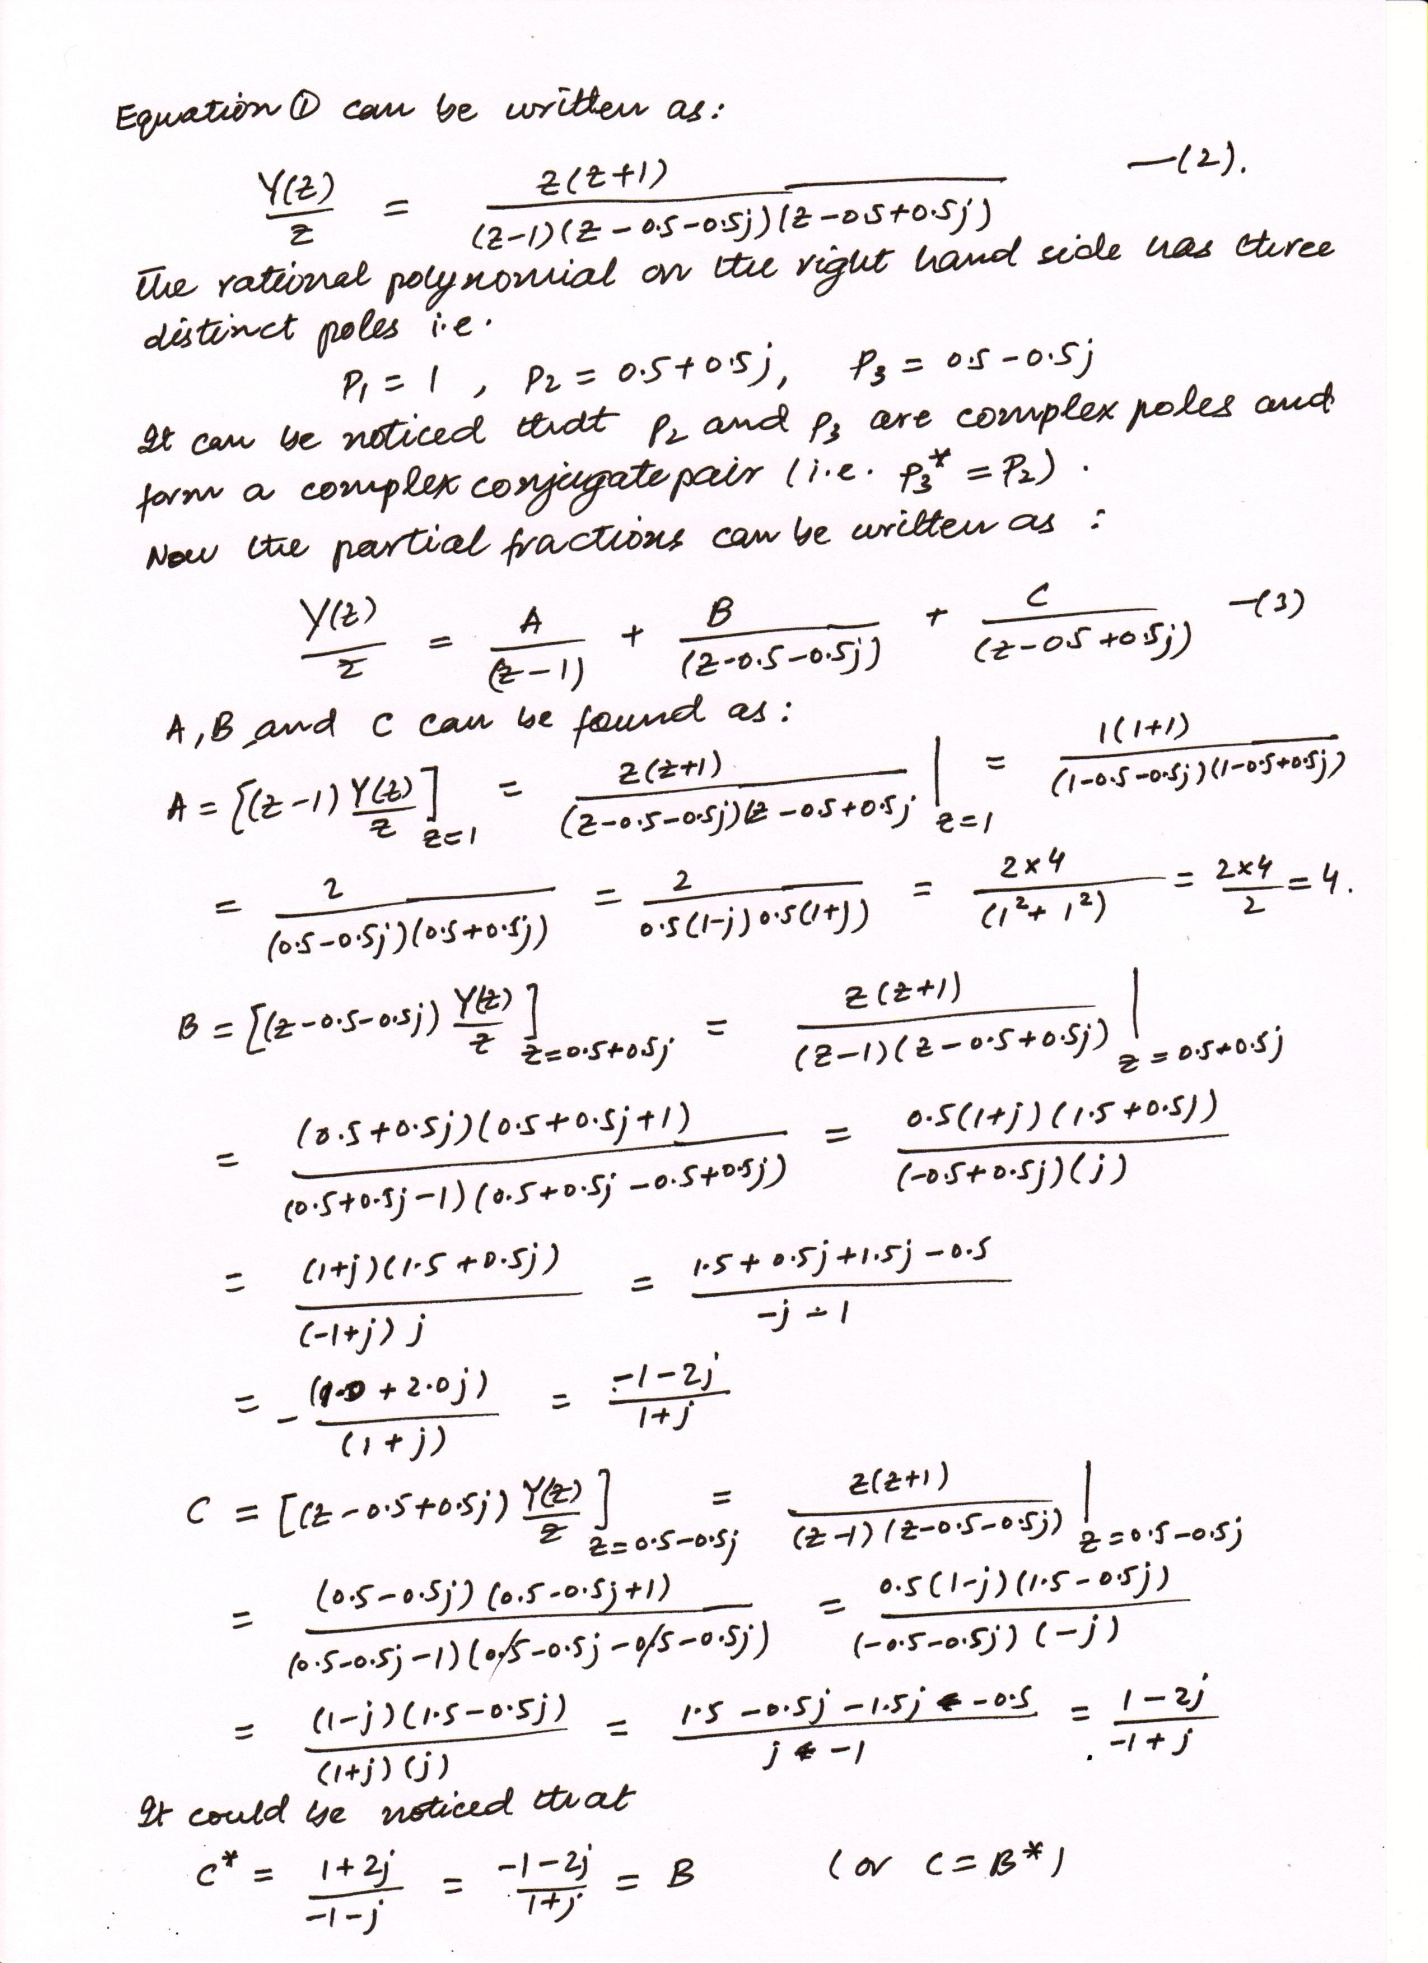 Equation ① can be written as:
Y(z)/z = z(z+1)/((z-1)(z-0.5-0.5j)(z-0.5+0.5j)) —(2).
The rational polynomial on the right hand side has three
distinct poles i.e.
P₁ = 1 , P₂ = 0.5+0.5j, P₃ = 0.5-0.5j
It can be noticed that P₂ and P₃ are complex poles and
form a complex conjugate pair (i.e. P₃* = P₂) .
Now the partial fractions can be written as :
Y(z)/z = A/(z-1) + B/(z-0.5-0.5j) + C/(z-0.5+0.5j) —(3)
A, B and C can be found as :
A = [(z-1) Y(z)/z]z=1 = z(z+1)/((z-0.5-0.5j)(z-0.5+0.5j |z=1 = 1(1+1)/((1-0.5-0.5j)(1-0.5+0.5j))
= 2/((0.5-0.5j)(0.5+0.5j)) = 2/(0.5(1-j)0.5(1+j)) = 2x4/(1²+1²) = 2x4/2 = 4.
B = [(z-0.5-0.5j) Y(z)/z]z=0.5+0.5j = z(z+1)/((z-1)(z-0.5+0.5j)) |z=0.5+0.5j
= (0.5+0.5j)(0.5+0.5j+1)/((0.5+0.5j-1)(0.5+0.5j-0.5+0.5j)) = 0.5(1+j)(1.5+0.5j)/((-0.5+0.5j)(j))
= (1+j)(1.5+0.5j)/((-1+j)j) = 1.5+0.5j+1.5j-0.5/(-j-1)
= -(1.0+2.0j)/(1+j) = -1-2j/(1+j)
C = [(z-0.5+0.5j) Y(z)/z]z=0.5-0.5j = z(z+1)/((z-1)(z-0.5-0.5j)) |z=0.5-0.5j
= (0.5-0.5j)(0.5-0.5j+1)/((0.5-0.5j-1)(0.5-0.5j-0.5-0.5j)) = 0.5(1-j)(1.5-0.5j)/((-0.5-0.5j)(-j))
= (1-j)(1.5-0.5j)/((1+j)(j)) = 1.5-0.5j-1.5j-0.5/(j-1) = 1-2j/(-1+j)
It could be noticed that
C* = 1+2j/(-1-j) = -1-2j/(1+j) = B (or C=B*)